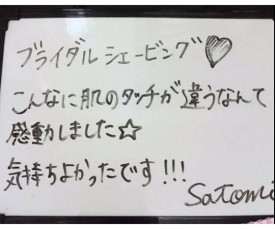 ブライダルシェービング♡
こんなに肌のタッチが違うなんて
感動しました☆
気持ちよかったです!!!
Satomi